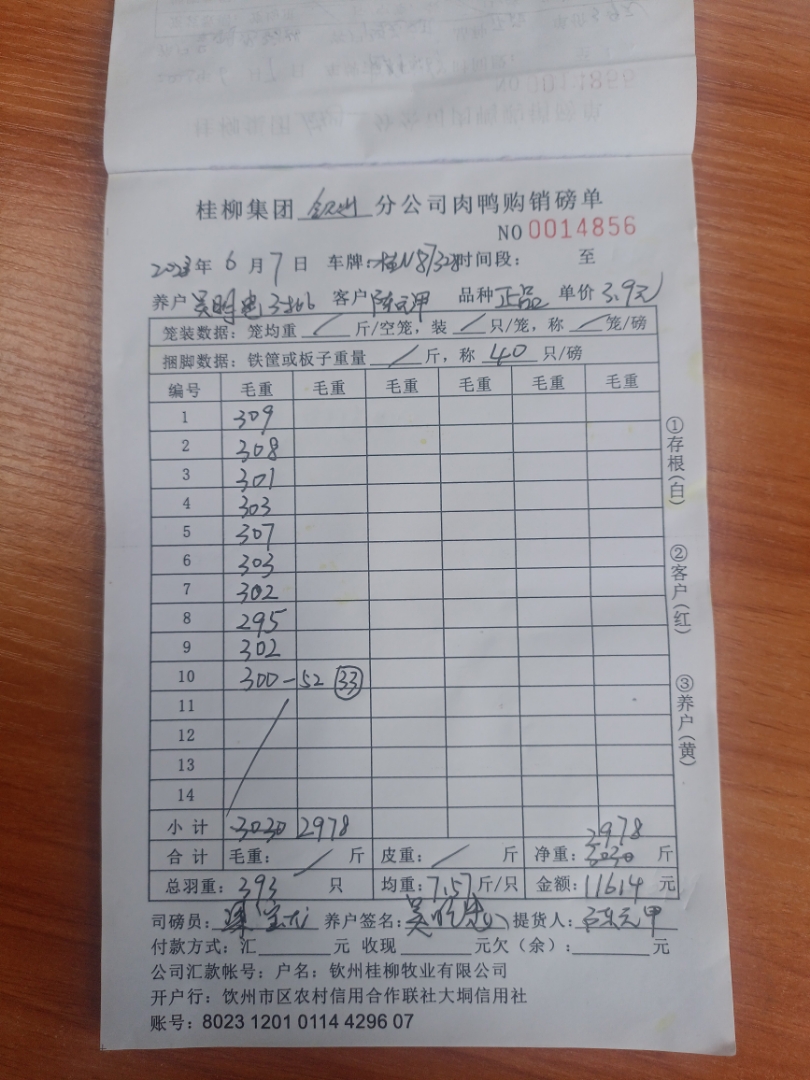 桂柳集团 钦州 分公司肉鸭购销磅单
NO 0014856
2023年 6 月 7 日 车牌: 桂N87328 时间段: 至
养户 吴明 客户 陈元甲 品种 正品 单价 3.9元
笼装数据: 笼均重 / 斤/空笼, 装 / 只/笼, 称 / 笼/磅
捆脚数据: 铁筐或板子重量 / 斤, 称 40 只/磅
编号 毛重 毛重 毛重 毛重 毛重 毛重
1 309
2 308
3 301
4 303
5 307
6 303
7 302
8 295
9 302
10 300-52 33
11
12
13
14
小计 3030 2978 2978
合计 毛重: / 斤 皮重: / 斤 净重: 3030 斤
总羽重: 393 只 均重: 7.57 斤/只 金额: 11614 元
司磅员: 养户签名: 吴 提货人: 陈元甲
付款方式: 汇 元 收现 元欠 (余): 元
公司汇款帐号: 户名: 钦州桂柳牧业有限公司
开户行: 饮州市区农村信用合作联社大垌信用社
账号: 8023 1201 0114 4296 07
①存根(白)
②客户(红)
③养户(黄)